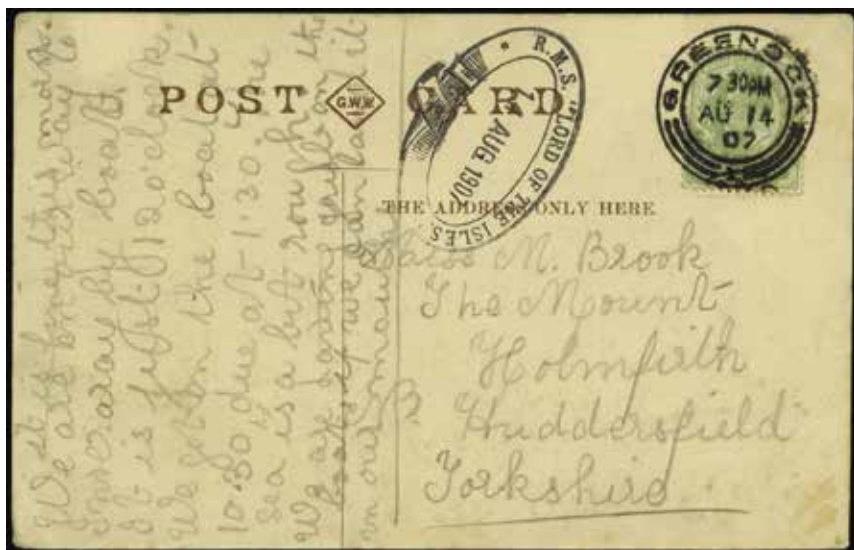 POST CARD
G.W.W.
R.M.S. "LORD OF THE ISLES"
AUG. 1907
GREENOCK
7 30PM
AU 14
07
THE ADDRESS ONLY HERE
Miss M. Brook
The Mount
Holmfirth
Huddersfield
Yorkshire
it is this morn.
We are on way to
Inveraray by boat.
It is just 12 o'clock.
We got on the boat at
10.30 due at 1.30. The
sea is a bit rough.
We are having the
boat if we can it
in our